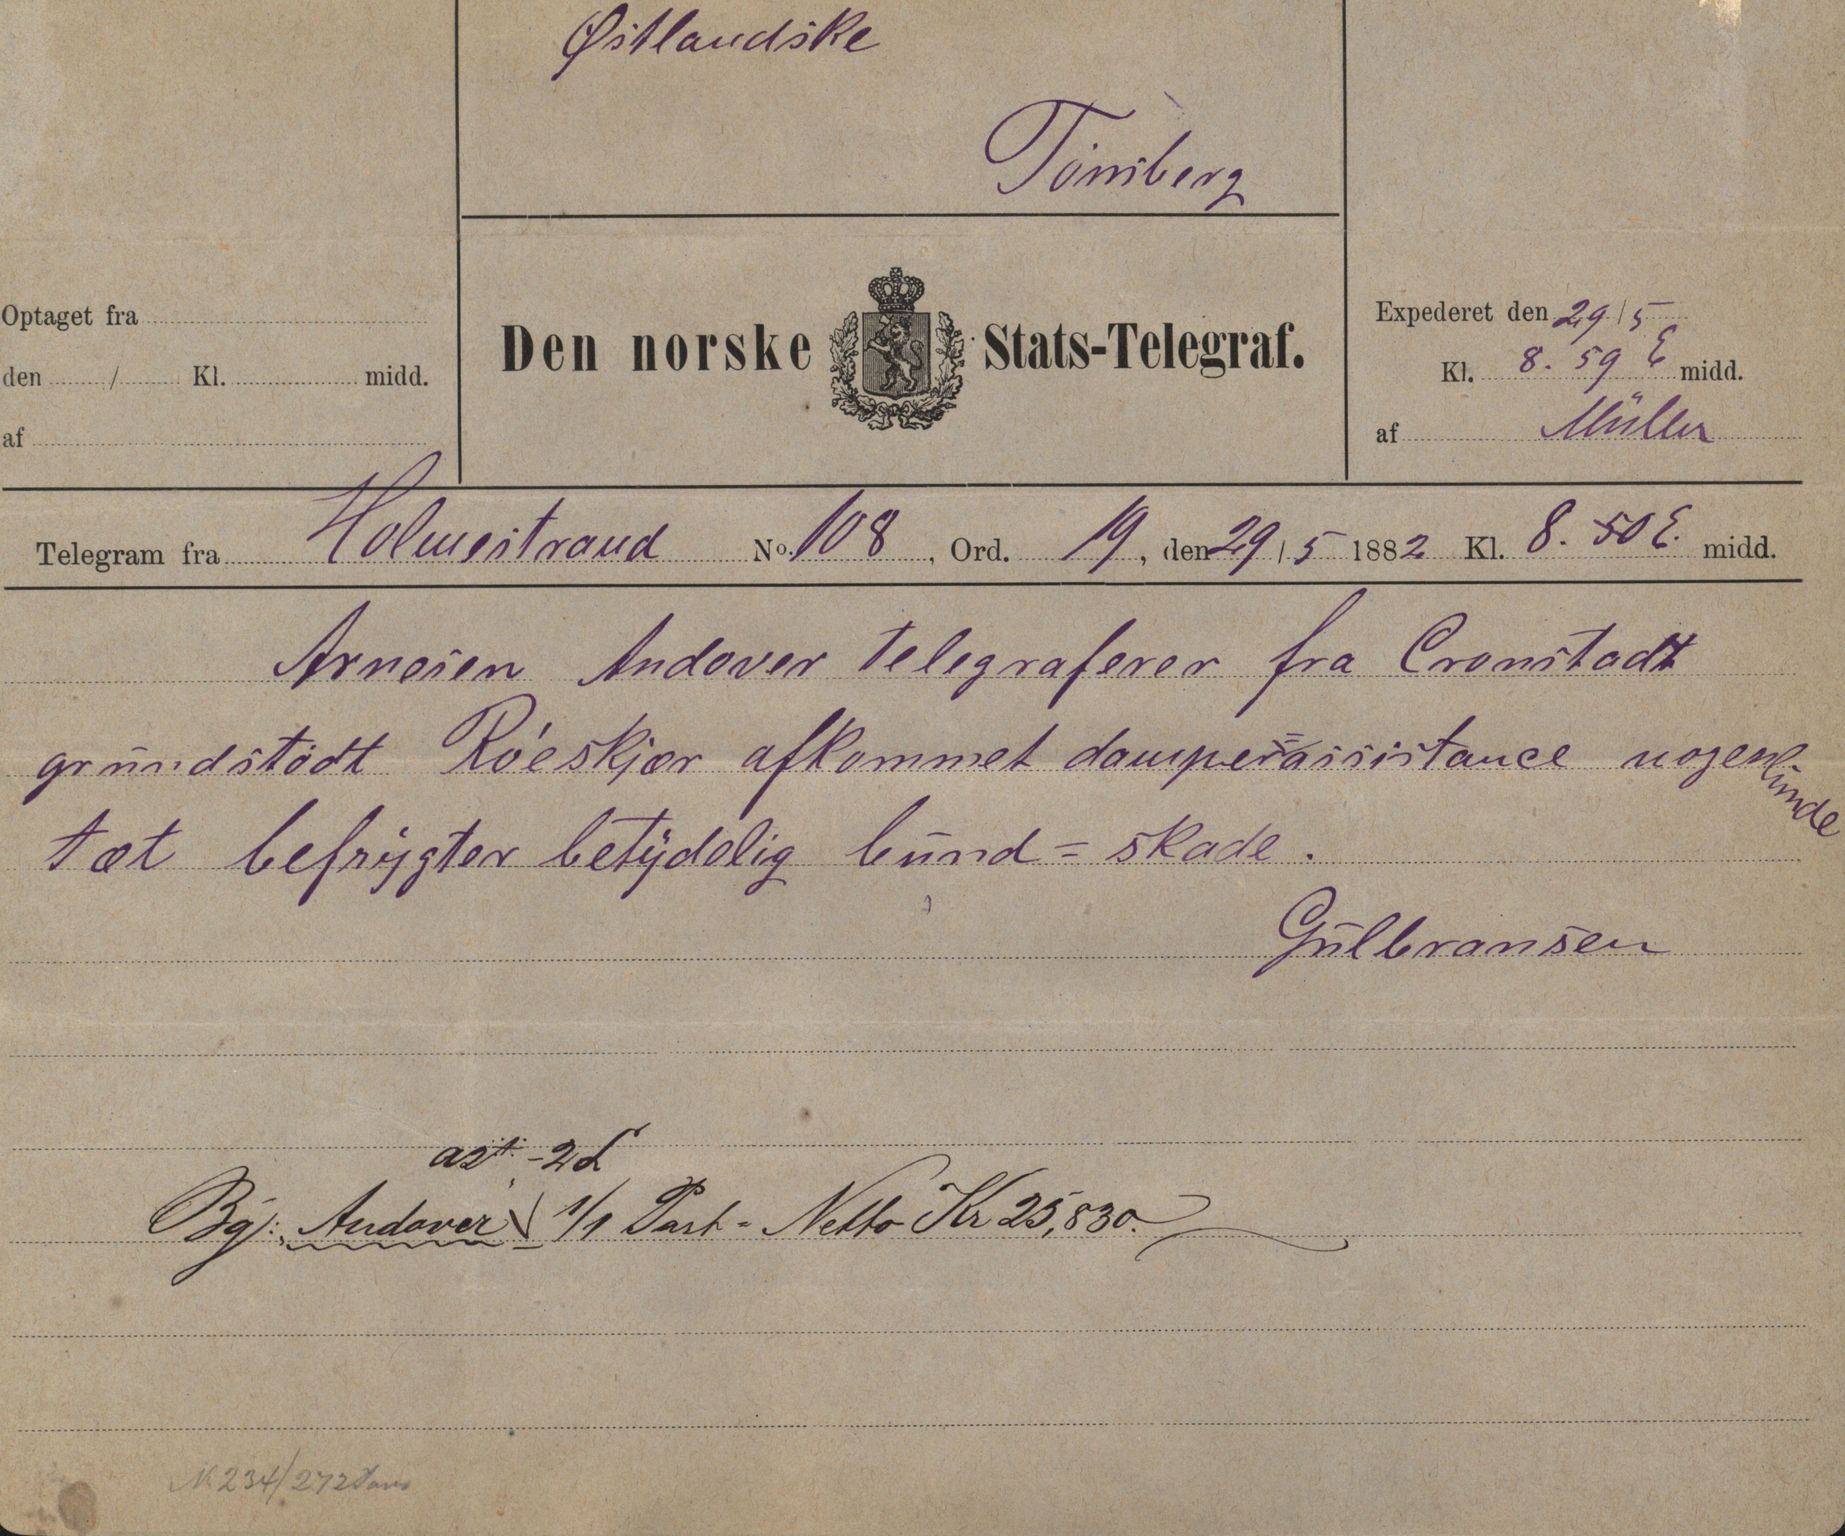 Østlandske
Tönsberg
Optaget fra
den / Kl. midd.
af
Den norske Stats-Telegraf.
Expederet den 29/5
Kl. 8.59 E midd.
af Müller
Telegram fra Holmestrand No. 108, Ord. 19, den 29/5 1882 Kl. 8.50 E. midd.
Arnesen Andover telegraferer fra Cronstadt
grundstödt Röeskjær afkommet damperassistance nogenlunde
tæt befrygter betydelig bund=skade.
Gulbransen
Bg: Andover 1/1 Part - Netto Kr 25,830.
N. 234/272